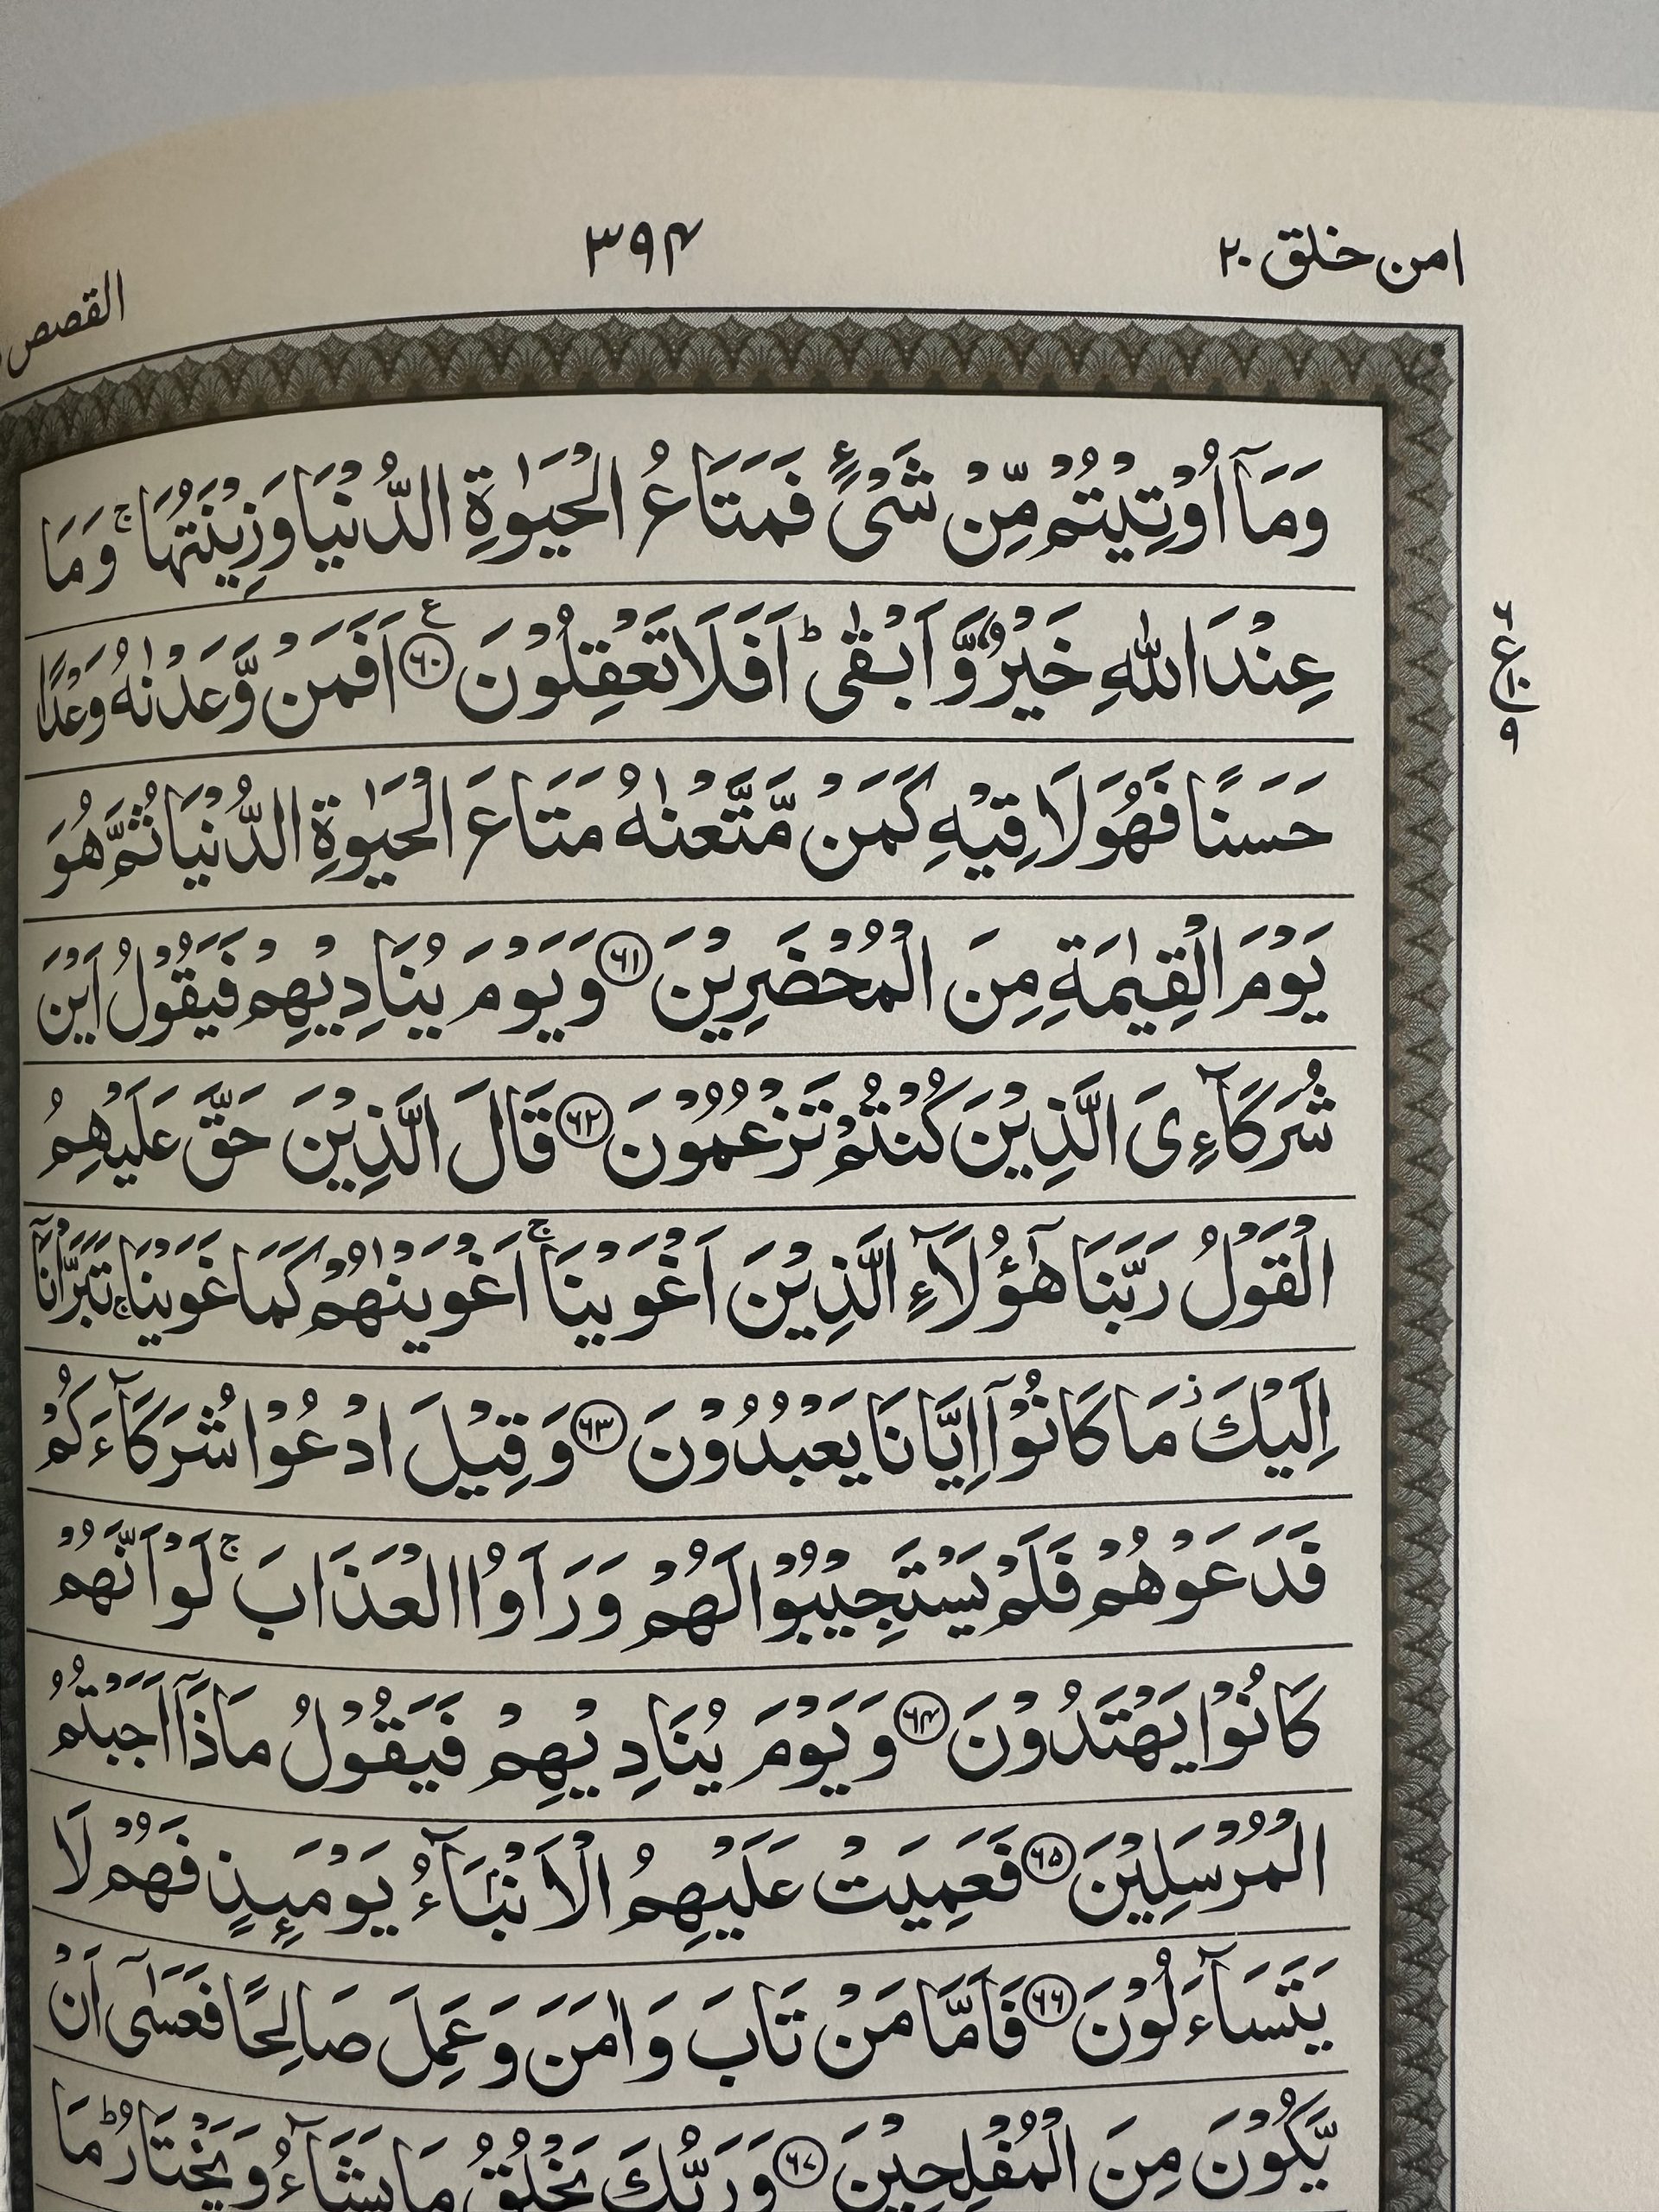 امن خلق ۲۰
۳۹۴
القصص
وَمَآ اُوْتِيْتُمْ مِّنْ شَىْءٍ فَمَتَاعُ الْحَيٰوةِ الدُّنْيَا وَزِيْنَتُهَا ۚ وَمَا
عِنْدَ اللّٰهِ خَيْرٌ وَّاَبْقٰى ؕ اَفَلَا تَعْقِلُوْنَ ۶۰ ع اَفَمَنْ وَّعَدْنٰهُ وَعْدًا
۶
ع
۱۰
۹
حَسَنًا فَهُوَ لَاقِيْهِ كَمَنْ مَّتَّعْنٰهُ مَتَاعَ الْحَيٰوةِ الدُّنْيَا ثُمَّ هُوَ
يَوْمَ الْقِيٰمَةِ مِنَ الْمُحْضَرِيْنَ ۶۱ وَيَوْمَ يُنَادِيْهِمْ فَيَقُوْلُ اَيْنَ
شُرَكَآءِىَ الَّذِيْنَ كُنْتُمْ تَزْعُمُوْنَ ۶۲ قَالَ الَّذِيْنَ حَقَّ عَلَيْهِمُ
الْقَوْلُ رَبَّنَا هٰٓؤُلَآءِ الَّذِيْنَ اَغْوَيْنَا ۚ اَغْوَيْنٰهُمْ كَمَا غَوَيْنَا ۚ تَبَرَّاْنَآ
اِلَيْكَ ؗ مَا كَانُوْٓا اِيَّانَا يَعْبُدُوْنَ ۶۳ وَقِيْلَ ادْعُوْا شُرَكَآءَكُمْ
فَدَعَوْهُمْ فَلَمْ يَسْتَجِيْبُوْا لَهُمْ وَرَاَوُا الْعَذَابَ ۚ لَوْ اَنَّهُمْ
كَانُوْا يَهْتَدُوْنَ ۶۴ وَيَوْمَ يُنَادِيْهِمْ فَيَقُوْلُ مَاذَآ اَجَبْتُمُ
الْمُرْسَلِيْنَ ۶۵ فَعَمِيَتْ عَلَيْهِمُ الْاَنْۢبَآءُ يَوْمَىِٕذٍ فَهُمْ لَا
يَتَسَآءَلُوْنَ ۶۶ فَاَمَّا مَنْ تَابَ وَاٰمَنَ وَعَمِلَ صَالِحًا فَعَسٰٓى اَنْ
يَّكُوْنَ مِنَ الْمُفْلِحِيْنَ ۶۷ وَرَبُّكَ يَخْلُقُ مَا يَشَآءُ وَيَخْتَارُ ؕ مَا